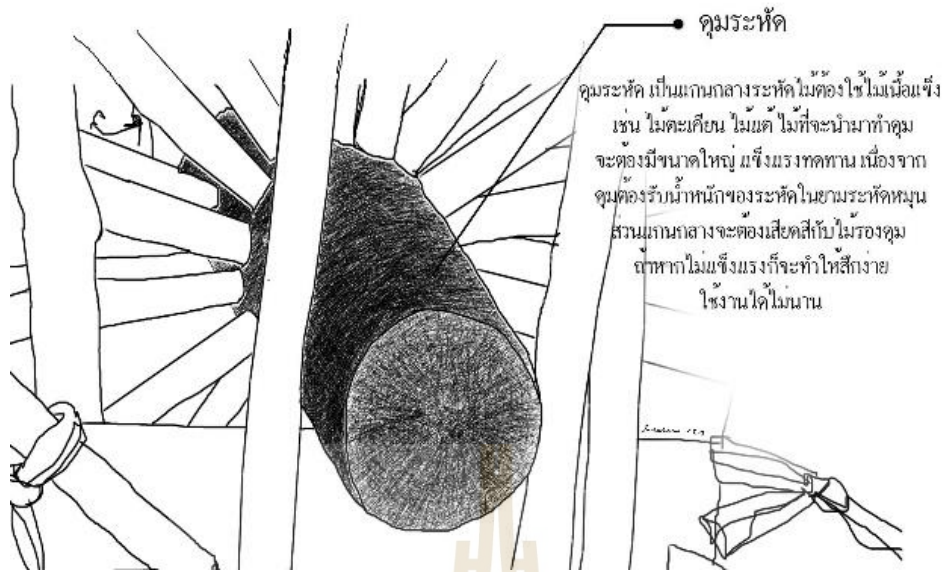 ดุมระหัด
ดุมระหัด เป็นแกนกลางระหัดไม้ต้องใช้ไม้เนื้อแข็ง
เช่น ไม้ตะเคียน ไม้แต้ ไม้ที่จะนำมาทำดุม
จะต้องมีขนาดใหญ่ แข็งแรงทดทาน เนื่องจาก
ดุมต้องรับน้ำหนักของระหัดในยามระหัดหมุน
ส่วนแกนกลางจะต้องเสียดสีกับไม้รองดุม
ถ้าหากไม่แข็งแรงก็จะทำให้สึกง่าย
ใช้งานได้ไม่นาน